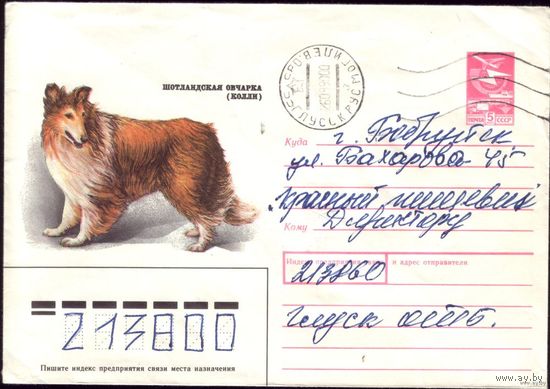 ШОТЛАНДСКАЯ ОВЧАРКА
(КОЛЛИ)
ПОЧТА 5 СССР
Куда г. Бобруйск
ул. Бахарова 45
"Красный пищевик"
Кому Директору
Индекс предприятия связи и адрес отправителя
213860
Глуск отб.
213800
Пишите индекс предприятия связи места назначения
www.ay.by